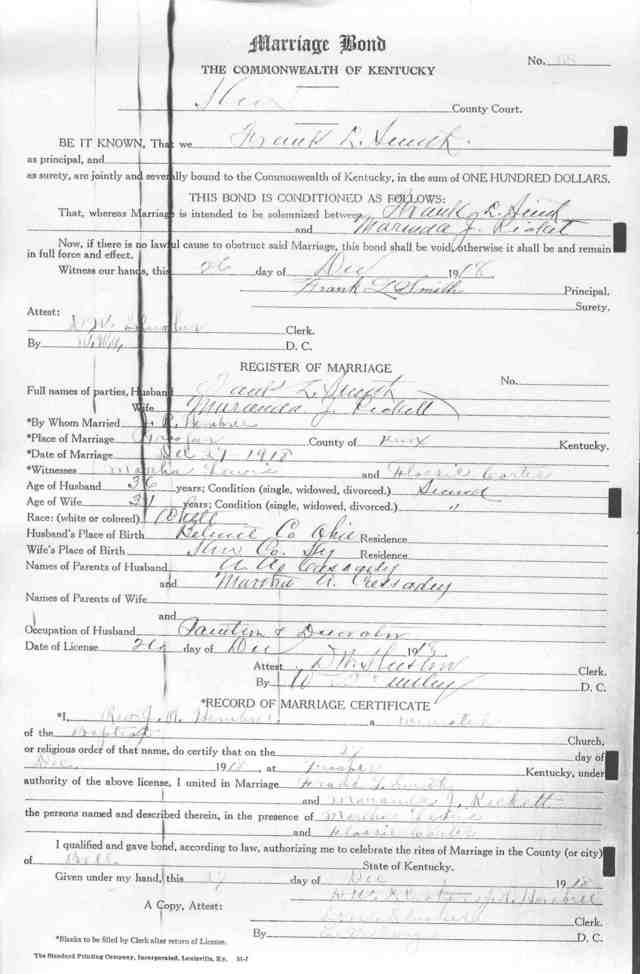 Marriage Bond
No.
THE COMMONWEALTH OF KENTUCKY
Knox County Court.
BE IT KNOWN, That we Frank L. Smith
as principal, and
as surety, are jointly and severally bound to the Commonwealth of Kentucky, in the sum of ONE HUNDRED DOLLARS.
THIS BOND IS CONDITIONED AS FOLLOWS:
That, whereas Marriage is intended to be solemnized between Frank L. Smith
and Maranda J. Pickett
Now, if there is no lawful cause to obstruct said Marriage, this bond shall be void, otherwise it shall be and remain
in full force and effect.
Witness our hands, this 26 day of Dec 1918
Frank L Smith Principal.
Surety.
Attest:
Clerk.
By D. C.
REGISTER OF MARRIAGE
No.
Full names of parties, Husband Frank L. Smith
Wife Maranda J. Pickett
*By Whom Married
*Place of Marriage County of Knox Kentucky.
*Date of Marriage Dec 27 1918
*Witnesses Martha and Flossie Carter
Age of Husband 36 years; Condition (single, widowed, divorced.)
Age of Wife years; Condition (single, widowed, divorced.) "
Race: (white or colored)
Husband's Place of Birth Co Ohio Residence
Wife's Place of Birth Knox Co. Ky Residence
Names of Parents of Husband
and Martha A.
Names of Parents of Wife
and
Occupation of Husband
Date of License 26 day of Dec 1918
Attest Clerk.
By D. C.
*RECORD OF MARRIAGE CERTIFICATE
*I, Rev. a minister
of the Baptist Church,
or religious order of that name, do certify that on the 27 day of
Dec. 1918, at Kentucky, under
authority of the above license, I united in Marriage Frank L. Smith
and Maranda J. Pickett
the persons named and described therein, in the presence of Martha
and Flossie Carter
I qualified and gave bond, according to law, authorizing me to celebrate the rites of Marriage in the County (or city)
of Bell State of Kentucky.
Given under my hand, this 27 day of Dec 1918
A Copy, Attest:
Clerk.
By D. C.
*Blanks to be filled by Clerk after return of License.
The Standard Printing Company, Incorporated, Louisville, Ky.